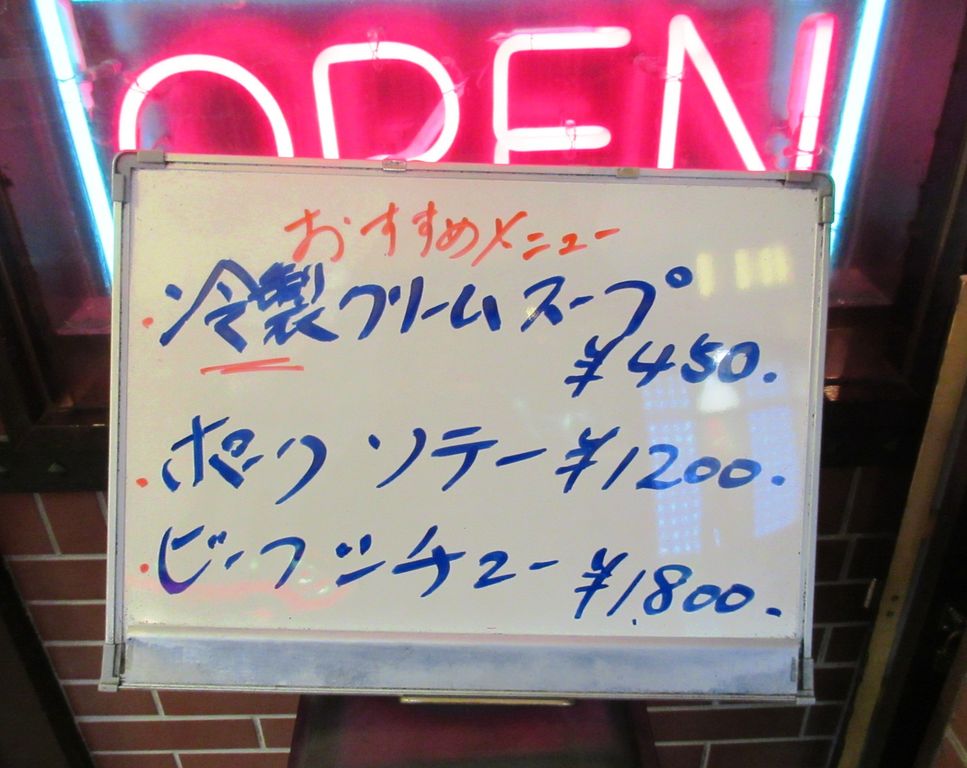 OPEN
おすすめメニュー
・冷製クリームスープ
¥450.
・ポーク ソテー ¥1200.
・ビーフシチュー ¥1,800.